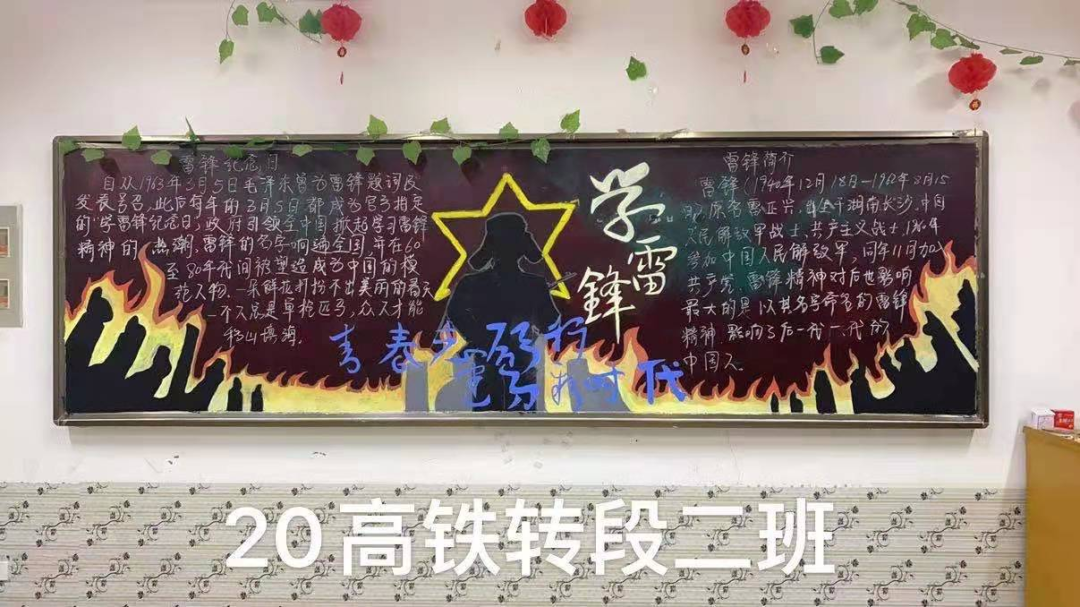 雷锋纪念日
自从1963年3月5日毛泽东曾为雷锋题词
发表
此后每年的3月5日都成为官方指定
的"学雷锋纪念日",政府引领全中国掀起学习雷锋
精神的热潮,雷锋的名字响遍全国,并在60
至80年代间被塑造成为中国的模
范人物。一朵鲜花打扮不出美丽的春天
一个人总是单枪匹马,众人才能
移山填海。
学雷鋒
青春
时代
雷锋简介
雷锋(1940年12月18日—1962年8月15
日),原名雷正兴,湖南长沙,中国
人民解放军战士、共产主义战士,1960年
参加中国人民解放军,同年11月加入
共产党。雷锋精神对后世影响
最大的是以其名字命名的雷锋
精神,影响了后一代一代的
中国人。
20高铁转段二班